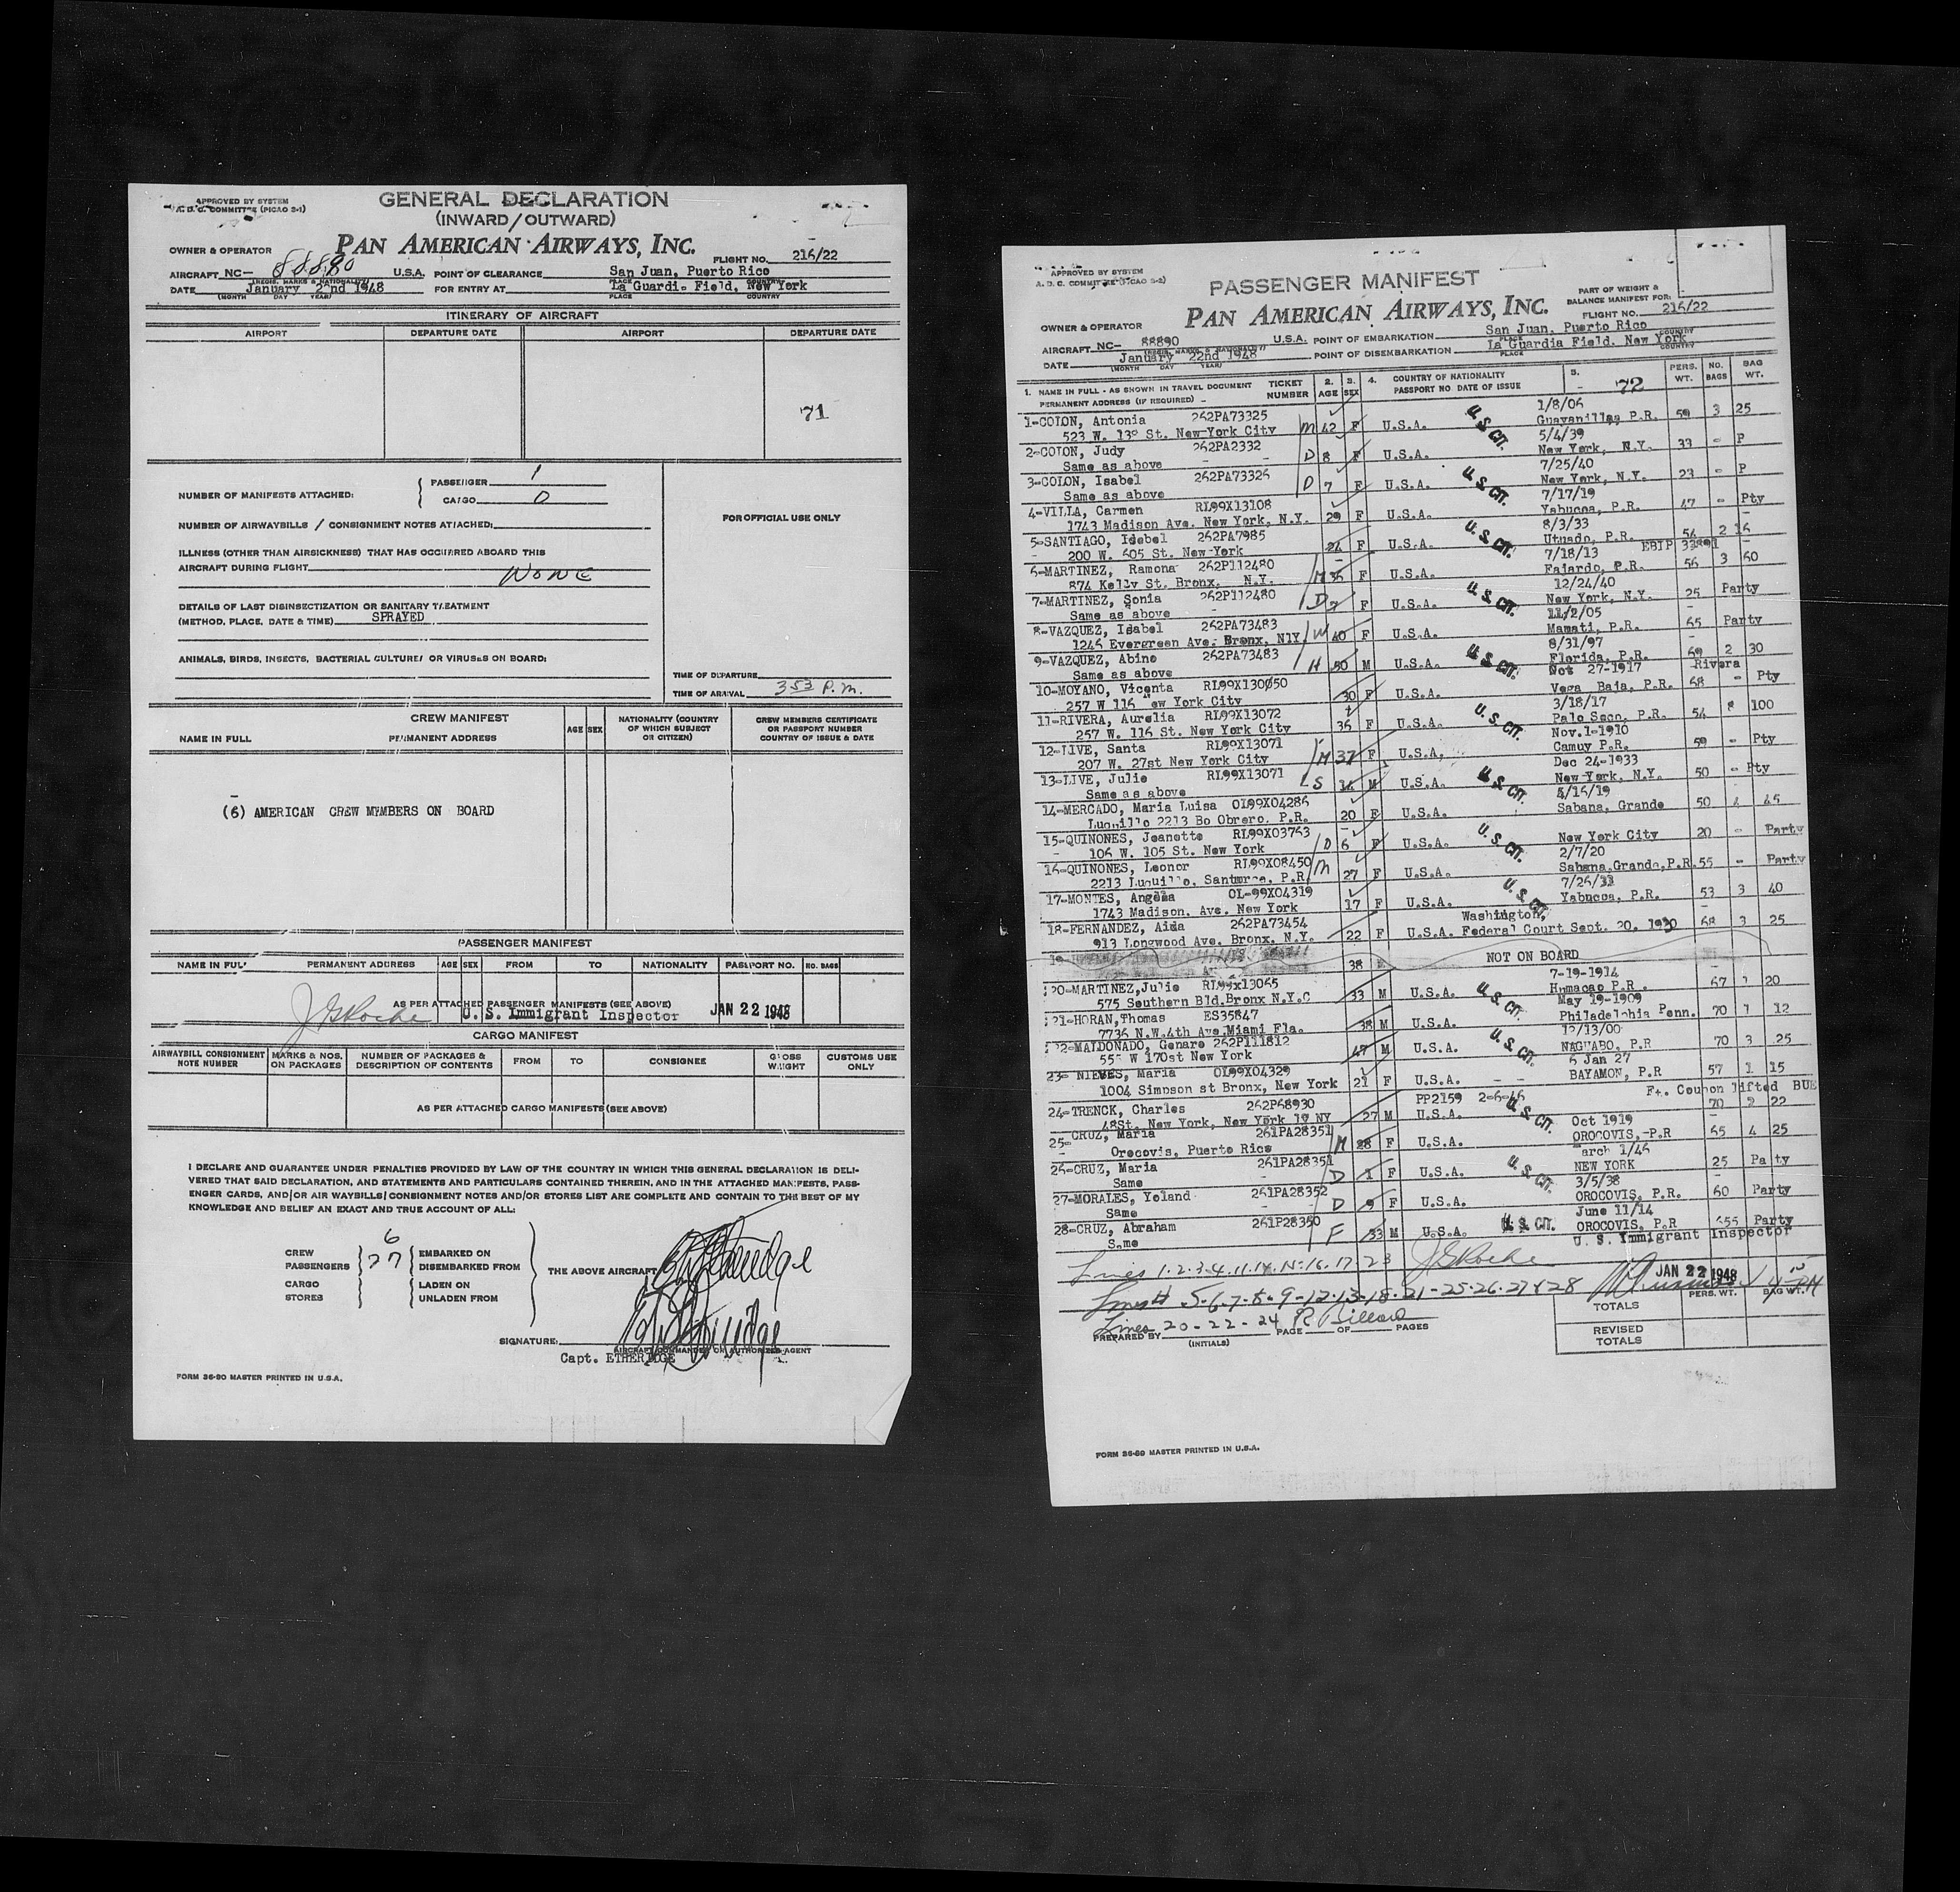 APPROVED BY SYSTEM
A. D. C. COMMITTEE (PICAO S-1)
GENERAL DECLARATION
(INWARD/OUTWARD)
OWNER & OPERATOR PAN AMERICAN AIRWAYS, INC.
FLIGHT NO. 216/22
AIRCRAFT NC— 88890 U.S.A. POINT OF CLEARANCE San Juan, Puerto Rico
(REGIS. MARKS & NATIONALITY) PLACE COUNTRY
DATE January 22nd 1948 FOR ENTRY AT La Guardia Field, New York
(MONTH DAY YEAR) PLACE COUNTRY
ITINERARY OF AIRCRAFT
AIRPORT DEPARTURE DATE AIRPORT DEPARTURE DATE
71
NUMBER OF MANIFESTS ATTACHED: PASSENGER 1
CARGO 0
NUMBER OF AIRWAYBILLS / CONSIGNMENT NOTES ATTACHED:
FOR OFFICIAL USE ONLY
ILLNESS (OTHER THAN AIRSICKNESS) THAT HAS OCCURRED ABOARD THIS
AIRCRAFT DURING FLIGHT NONE
DETAILS OF LAST DISINSECTIZATION OR SANITARY TREATMENT
(METHOD, PLACE, DATE & TIME) SPRAYED
ANIMALS, BIRDS, INSECTS, BACTERIAL CULTURES OR VIRUSES ON BOARD:
TIME OF DEPARTURE
TIME OF ARRIVAL 353 P.M.
CREW MANIFEST
NAME IN FULL PERMANENT ADDRESS AGE SEX NATIONALITY (COUNTRY OF WHICH SUBJECT OR CITIZEN) CREW MEMBERS CERTIFICATE OR PASSPORT NUMBER COUNTRY OF ISSUE & DATE
(6) AMERICAN CREW MEMBERS ON BOARD
PASSENGER MANIFEST
NAME IN FULL PERMANENT ADDRESS AGE SEX FROM TO NATIONALITY PASSPORT NO. NO. BAGS
AS PER ATTACHED PASSENGER MANIFESTS (SEE ABOVE)
J G Roche U. S. Immigrant Inspector JAN 22 1948
CARGO MANIFEST
AIRWAYBILL CONSIGNMENT NOTE NUMBER MARKS & NOS. ON PACKAGES NUMBER OF PACKAGES & DESCRIPTION OF CONTENTS FROM TO CONSIGNEE GROSS WEIGHT CUSTOMS USE ONLY
AS PER ATTACHED CARGO MANIFESTS (SEE ABOVE)
I DECLARE AND GUARANTEE UNDER PENALTIES PROVIDED BY LAW OF THE COUNTRY IN WHICH THIS GENERAL DECLARATION IS DELI-
VERED THAT SAID DECLARATION, AND STATEMENTS AND PARTICULARS CONTAINED THEREIN, AND IN THE ATTACHED MANIFESTS, PASS-
ENGER CARDS, AND/OR AIR WAYBILLS/CONSIGNMENT NOTES AND/OR STORES LIST ARE COMPLETE AND CONTAIN TO THE BEST OF MY
KNOWLEDGE AND BELIEF AN EXACT AND TRUE ACCOUNT OF ALL:
CREW 6 EMBARKED ON
PASSENGERS 27 DISEMBARKED FROM
THE ABOVE AIRCRAFT
CARGO LADEN ON
STORES UNLADEN FROM
SIGNATURE:
AIRCRAFT COMMANDER OR AUTHORIZED AGENT
Capt. ETHERIDGE
FORM 36-80 MASTER PRINTED IN U.S.A.
APPROVED BY SYSTEM
A. D. C. COMMITTEE (PICAO S-2)
PASSENGER MANIFEST
PART OF WEIGHT & BALANCE MANIFEST FOR:
OWNER & OPERATOR PAN AMERICAN AIRWAYS, INC.
FLIGHT NO. 216/22
AIRCRAFT NC— 88890 U.S.A. POINT OF EMBARKATION San Juan, Puerto Rico
(REGIS. MARKS & NATIONALITY) PLACE COUNTRY
DATE January 22nd 1948 POINT OF DISEMBARKATION La Guardia Field, New York
(MONTH DAY YEAR) PLACE COUNTRY
1. NAME IN FULL - AS SHOWN IN TRAVEL DOCUMENT TICKET NUMBER 2. AGE 3. SEX 4. COUNTRY OF NATIONALITY 5. 72 PERS. WT. NO. BAGS BAG WT.
PERMANENT ADDRESS (IF REQUIRED) PASSPORT NO. DATE OF ISSUE
1-COLON, Antonia 262PA73325 M 42 F U.S.A. U.S. CIT. 1/8/06 Guayanilla, P.R. 59 3 25
523 W. 138 St. New York City
2-COLON, Judy 262PA2332 D 8 F U.S.A. 5/4/39 New York, N.Y. 33 - P
Same as above
3-COLON, Isabel 262PA73326 D 7 F U.S.A. U.S. CIT. 7/25/40 New York, N.Y. 23 - P
Same as above
4-VILLA, Carmen RL99X13108 29 F U.S.A. 7/17/19 Yabucoa, P.R. 47 - Pty
1743 Madison Ave. New York, N.Y.
5-SANTIAGO, Idebel 262PA7985 F U.S.A. U.S. CIT. 8/3/33 Utuado, P.R. 54 2 16
200 W. 605 St. New York
EBIP
6-MARTINEZ, Ramona 262P112480 M 35 F U.S.A. 7/18/13 Fajardo, P.R. 56 3 60
874 Kelly St. Bronx. N.Y.
7-MARTINEZ, Sonia 262P112480 D 7 F U.S.A. U.S. CIT. 12/24/40 New York, N.Y. 25 Party
Same as above
8-VAZQUEZ, Isabel 262PA73483 W 40 F U.S.A. 11/2/05 Manati, P.R. 65 Party
1246 Evergreen Ave. Bronx, NIY
9-VAZQUEZ, Abino 262PA73483 H 50 M U.S.A. U.S. CIT. 8/31/97 Florida, P.R. 69 2 30
Same as above
10-MOYANO, Vicenta RL99X130050 30 F U.S.A. Oct 27-1917 Rivera Vega Baja, P.R. 68 - Pty
257 W 116 ew York City
11-RIVERA, Aurelia RL99X13072 36 F U.S.A. U.S. CIT. 3/18/17 Palo Seco, P.R. 54 8 100
257 W. 116 St. New York City
12-LIVE, Santa RL99X13071 M 37 F U.S.A. Nov.1-1910 Camuy P.R. 59 - Pty
207 W. 27st New York City
13-LIVE, Julio RL99X13071 S 14 M U.S.A. U.S. CIT. Dec 24-1933 New York, N.Y. 50 - Pty
Same as above
14-MERCADO, Maria Luisa OL99X04286 20 F U.S.A. 4/16/19 Sabana, Grande 50 4 45
Luquillo 2213 Bo Obrero, P.R.
15-QUINONES, Jeanette RL99X03763 D 6 F U.S.A. U.S. CIT. New York City 20 - Party
106 W. 105 St. New York
16-QUINONES, Leonor RL99X08450 M 27 F U.S.A. 2/7/20 Sabana Grande, P.R. 55 - Party
2213 Luquillo, Santurce, P.R.
17-MONTES, Angelia OL-99X04319 17 F U.S.A. U.S. CIT. 7/26/33 Yabucoa, P.R. 53 3 40
1743 Madison. Ave. New York
18-FERNANDEZ, Aida 262PA73454 22 F U.S.A. Washington, Federal Court Sept. 20, 1930 68 3 25
913 Longwood Ave. Bronx, N.Y.
19- 38 M NOT ON BOARD
20-MARTINEZ, Julio RL99x13065 33 M U.S.A. U.S. CIT. 7-19-1914 Humacao P.R. 67 1 20
575 Southern Bld. Bronx N.Y.C
21-HORAN, Thomas ES35847 38 M U.S.A. May 19-1909 Philadelphia Penn. 70 1 12
7736 N.W. 4th Ave. Miami Fla.
22-MALDONADO, Genaro 262P111812 47 M U.S.A. U.S. CIT. 12/13/00 NAGUABO, P.R 70 3 25
555 W 170st New York
23- NIEVES, Maria OL99X04329 21 F U.S.A. 6 Jan 27 BAYAMON, P.R 57 1 15
1004 Simpson st Bronx, New York
24-TRENCK, Charles 262P68930 27 M PP2159 2-6-46 U.S.A. U.S. CIT. Ft. Coupon lifted BUE 70 2 22
48St. New York, New York 19 NY
25-CRUZ, Maria 261PA28351 M 28 F U.S.A. Oct 1919 OROCOVIS, -P.R 65 4 25
Orocovis, Puerto Rico
26-CRUZ, Maria 261PA28351 D 1 F U.S.A. U.S. CIT. arch 1/46 NEW YORK 25 Pa ty
Same
27-MORALES, Yoland 261PA28352 D 9 F U.S.A. 3/5/38 OROCOVIS, P.R. 60 Party
Same
28-CRUZ, Abraham 261P28350 F 33 M U.S.A. U.S. CIT. June 11/14 OROCOVIS, P.R 155 Party
Same
U. S. Immigrant Inspector
Lines 1-2-3-4-11-14-15-16-17-23 J G Roche
JAN 22 1948
Lines # 5-6-7-8-9-12-13-18-21-25-26-27 & 28
Lines 20-22-24
TOTALS PERS. WT. BAG WT.
REVISED TOTALS
PREPARED BY (INITIALS) PAGE OF PAGES
FORM 36-80 MASTER PRINTED IN U.S.A.